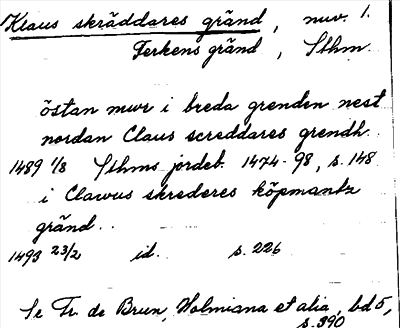 Klaus skräddares gränd, nuv. 1.
Ferkens gränd, Sthm.
östan mur i breda grenden nest
nordan Claus screddares grendh.
1489 1/8 Sthms jordeb. 1474-98, s. 148
i Clawus skrederes köpmantz
gränd..
1493 23/2 id. s. 226
Se Fr. de Brun, Holmiana et alia, bd 5,
s. 390